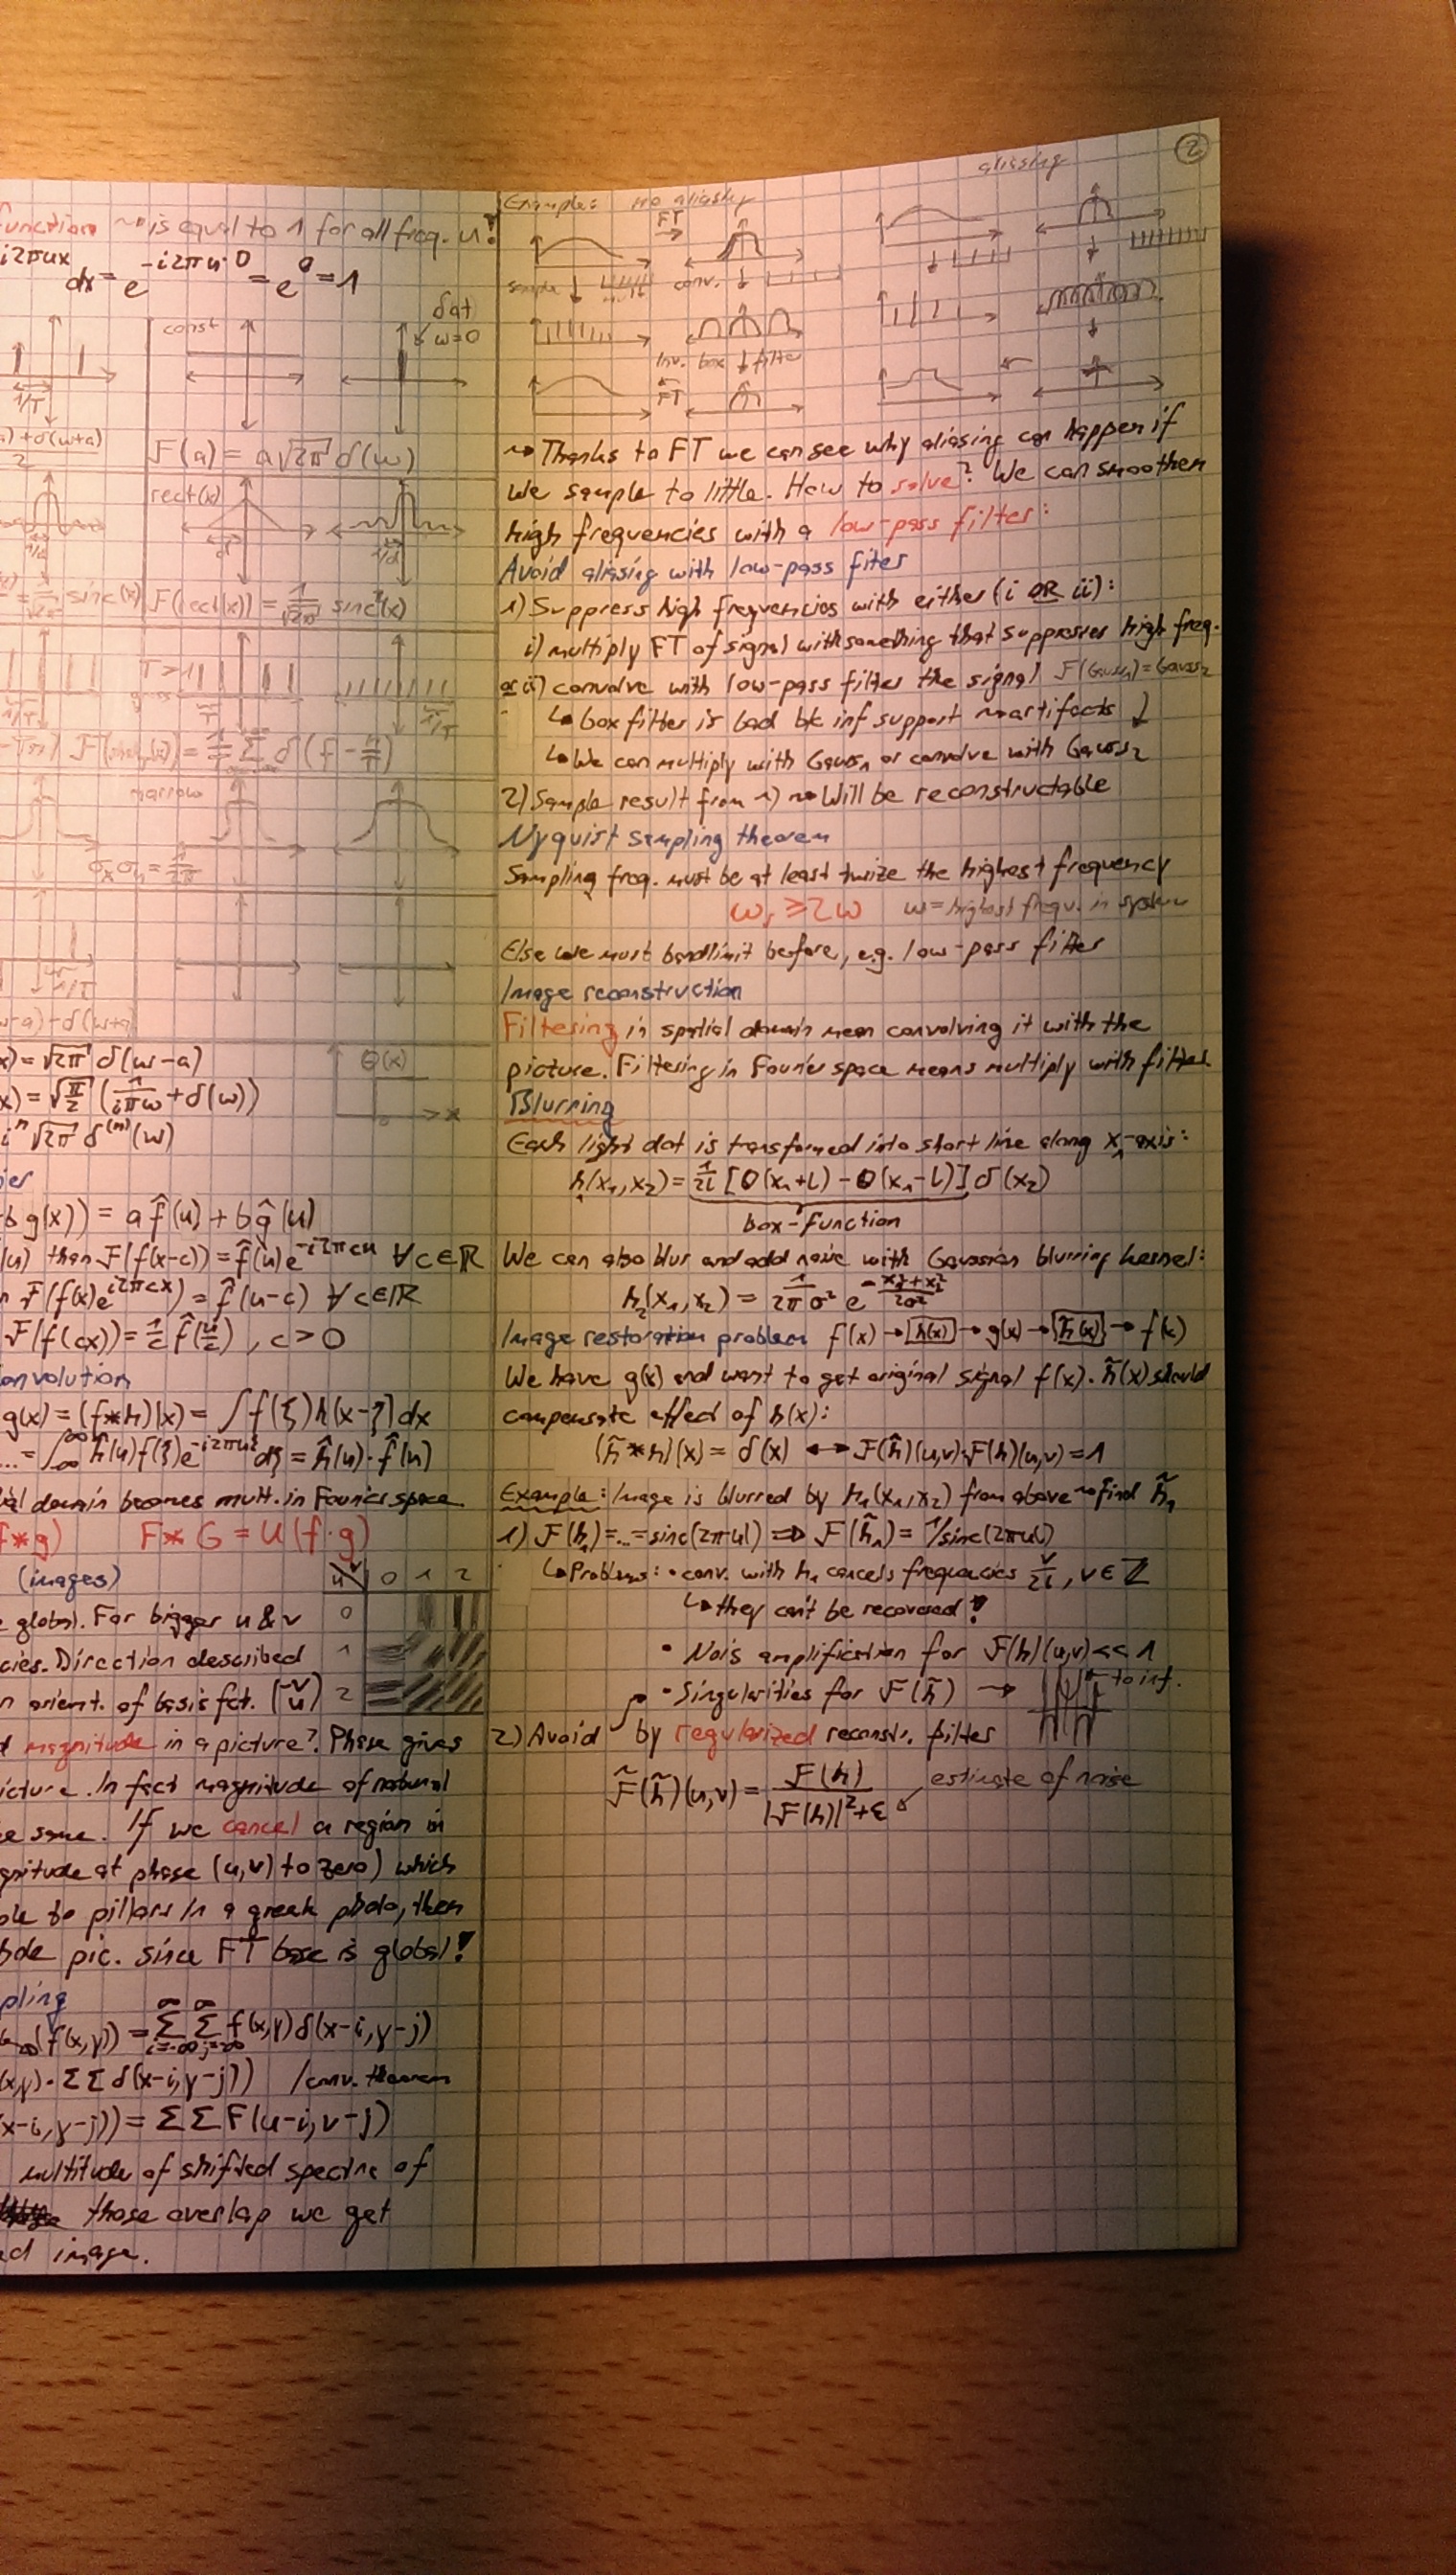 function ~> is equal to 1 for all freq. u!
i2πux dx = e^{-i2πu·0} = e^0 = 1
const
δ at
ω=0
1/T
a) + δ(w+a)
2
F(a) = a√2π δ(ω)
rect(x)
d
1/d
sinc(x)
F(rect(x)) = 1/√2π sinc²(x)
T>1
T
1/T
1/T
narrow
σx σu = 1/2π
1/T
w-a) - δ(w+a)
x) = √2π δ(w-a)
x) = √π/2 (1/iπω + δ(w))
i^n √2π δ^(n)(w)
Θ(x)
x
ier
b g(x)) = a f̂(u) + b ĝ(u)
(u) than F(f(x-c)) = f̂(u)e^{-i2πcu} ∀c∈ℝ
F(f(x)e^{i2πcx}) = f̂(u-c) ∀c∈ℝ
F(f(cx)) = 1/c f̂(u/c), c>0
onvolution
g(x) = (f*h)(x) = ∫f(ξ)h(x-ξ)dx
... = ∫_∞^∞ ĥ(u)f(ξ)e^{-i2πuξ}dξ = ĥ(u)·f̂(u)
ial domain becomes mult. in Fourier space
f*g) F*G = U(f·g)
(images)
u v 0 1 2
0
1
2
e global. For bigger u & v
cies. Direction described
n orient. of basis fct. (-v u)
d magnitude in a picture? Phase gives
icture. In fact magnitude of natural
e same. If we cancel a region in
gnitude at phase (u,v) to zero) which
ole to pillars in a greek photo, then
hole pic. since FT base is global!
pling
(f(x,y)) = ∞Σi=-∞ ∞Σj=-∞ f(x,y)δ(x-i,y-j)
(x,y)·ΣΣδ(x-i,y-j)) /conv. theorem
(x-i,y-j)) = ΣΣF(u-i,v-j)
multitude of shifted spectra of
those overlap we get
ed image.
2
Example: no aliasing
aliasing
FT
sample
conv.
inv. box filter
FT
~> Thanks to FT we can see why aliasing can happen if
we sample to little. How to solve? We can smoothen
high frequencies with a low-pass filter:
Avoid aliasing with low-pass fiter
1) Suppress high frequencies with either (i OR ii):
i) multiply FT of signal with something that suppresses high freq.
or ii) convolve with low-pass filter the signal F(Gauss1) = Gauss2
↳ box filter is bad bk inf support ~> artifacts
↳ We can multiply with Gauss1 or convolve with Gauss2
2) Sample result from 1) ~> Will be reconstructable
Nyquist sampling theorem
Sampling freq. must be at least twize the highest frequency
ωs ≥ 2ω ω = highest frequ. in system
Else we must bandlimit before, e.g. low-pass filter
Image reconstruction
Filtering in spatial domain mean convolving it with the
picture. Filtering in Fourier space means multiply with filter
Blurring
Each light dot is transformed into short line along x1-axis:
h1(x1,x2) = 1/2l [Θ(x1+l) - Θ(x1-l)] δ(x2)
box-function
We can also blur and add noise with Gaussian blurring kernel:
h2(x1,x2) = 1/2πσ² e^{-(x1²+x2²)/2σ²}
Image restoration problem f(x) → h(x) → g(x) → h̃(x) → f(x)
We have g(x) and want to get original signal f(x). h̃(x) should
compensate effect of h(x):
(h̃*h)(x) = δ(x) ↔ F(h̃)(u,v)·F(h)(u,v) = 1
Example: Image is blurred by h1(x1,x2) from above ~> find h̃1
1) F(h1) = ... = sinc(2πul) ⇒ F(h̃1) = 1/sinc(2πul)
↳ Problems: • conv. with h1 cancels frequencies v/2l, v∈ℤ
↳ they can't be recovered!
• Nois amplification for F(h)(u,v) << 1
• Singularities for F(h̃) → to inf.
2) Avoid by regularized reconstr. filter
F̃(h̃)(u,v) = F(h)/(|F(h)|²+ε) ↙ estimate of noise